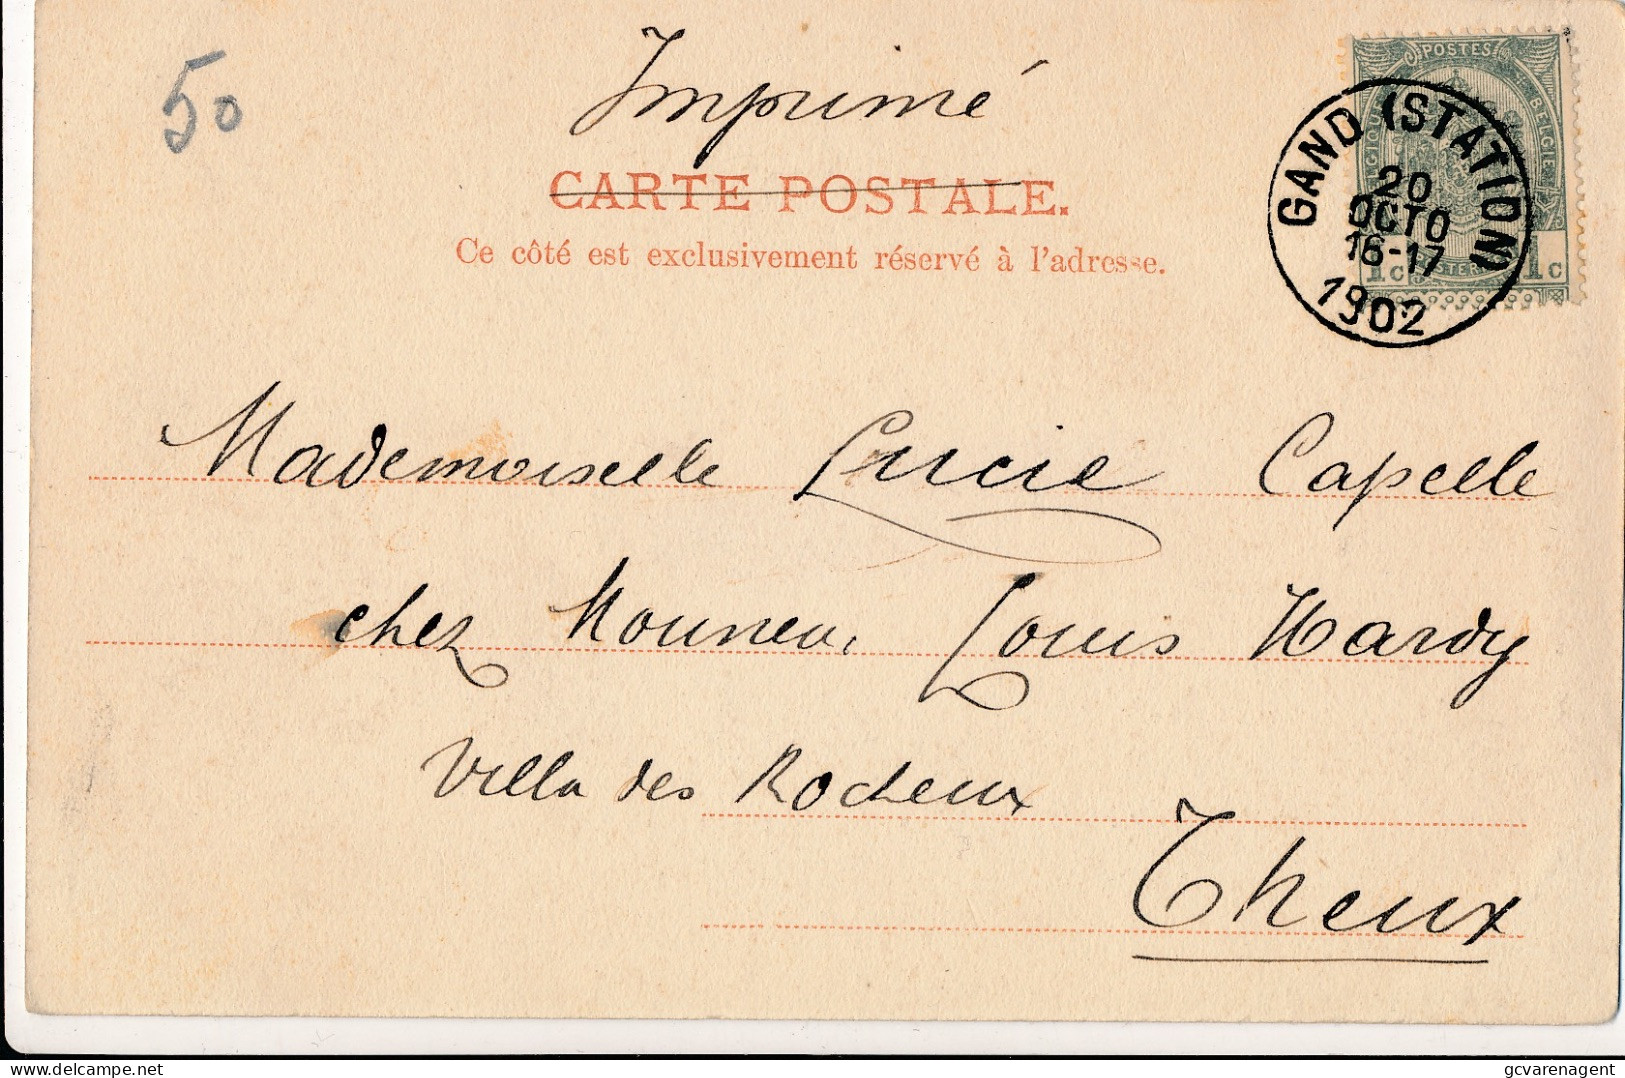 50
Imprimé
CARTE POSTALE.
Ce côté est exclusivement réservé à l'adresse.
POSTES
BELGIQUE BELGIE
1c 1c
GAND (STATION)
20
OCTO
16-17
1902
Mademoiselle Lucie Capelle
chez Monsieur Louis Hardy
Villa des Rocheux
Theux
https://www.delcampe.net
gcvarenagent